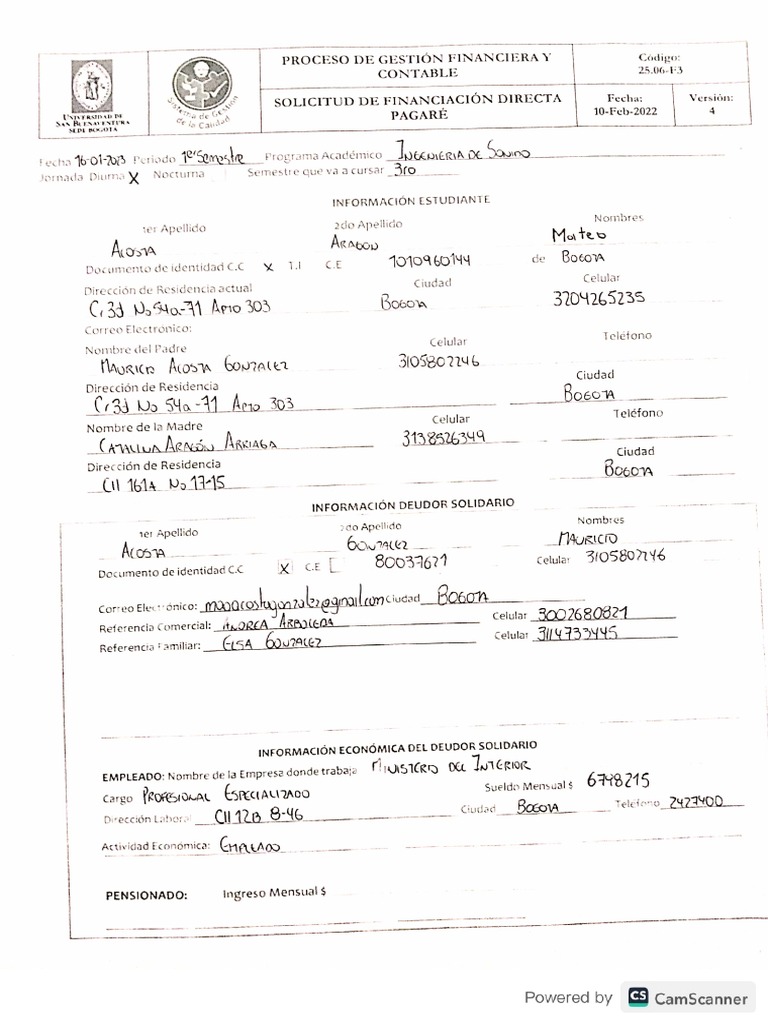 UNIVERSIDAD DE
SAN BUENAVENTURA
SEDE BOGOTÁ
Sistema de Gestión de la Calidad
PROCESO DE GESTIÓN FINANCIERA Y CONTABLE
Código: 25.06-F3
SOLICITUD DE FINANCIACIÓN DIRECTA PAGARÉ
Fecha: 10-Feb-2022
Versión: 4
Fecha 16-01-2023 Periodo 1er Semestre Programa Académico INGENIERIA DE SONIDO
Jornada Diurna X Nocturna Semestre que va a cursar 3ro
INFORMACIÓN ESTUDIANTE
1er Apellido 2do Apellido Nombres
ACOSTA ARAGON Mateo
Documento de identidad C.C X T.I C.E 1010960144 de BOGOTA
Dirección de Residencia actual Ciudad Celular
Cr3d No 54a-71 APTO 303 BOGOTA 3204265235
Correo Electrónico:
Nombre del Padre Celular Teléfono
MAURICIO ACOSTA GONZALEZ 3105802246
Dirección de Residencia Ciudad
Cr3d No 54a-71 APTO 303 BOGOTA
Nombre de la Madre Celular Teléfono
CATALINA ARAGÓN ARRIAGA 3138526349
Dirección de Residencia Ciudad
Cll 161A No 17-15 BOGOTA
INFORMACIÓN DEUDOR SOLIDARIO
1er Apellido 2do Apellido Nombres
ACOSTA GONZALEZ MAURICIO
Documento de identidad C.C X C.E 80037621 Celular 3105802246
Correo Electrónico: Ciudad BOGOTA
Referencia Comercial: ANDREA ARBOLEDA Celular 3002680821
Referencia Familiar: ELSA GONZALEZ Celular 3114733445
INFORMACIÓN ECONÓMICA DEL DEUDOR SOLIDARIO
EMPLEADO: Nombre de la Empresa donde trabaja MINISTERIO DEL INTERIOR
Cargo PROFESIONAL ESPECIALIZADO Sueldo Mensual $ 6748215
Dirección Laboral Cll 12B 8-46 Ciudad BOGOTA Teléfono 2427400
Actividad Económica: EMPLEADO
PENSIONADO: Ingreso Mensual $
Powered by CS CamScanner